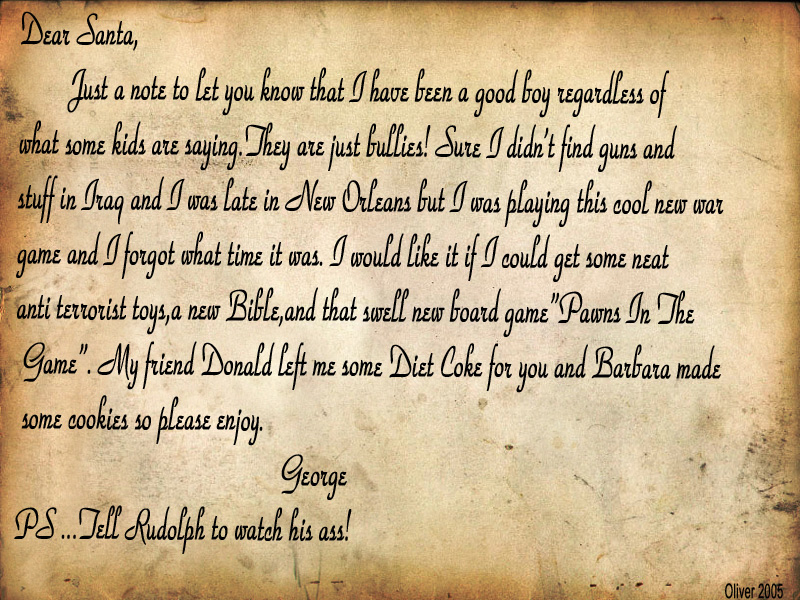 Dear Santa,
Just a note to let you know that I have been a good boy regardless of
what some kids are saying.They are just bullies! Sure I didn't find guns and
stuff in Iraq and I was late in New Orleans but I was playing this cool new war
game and I forgot what time it was. I would like it if I could get some neat
anti terrorist toys,a new Bible,and that swell new board game"Pawns In The
Game". My friend Donald left me some Diet Coke for you and Barbara made
some cookies so please enjoy.
George
PS ...Tell Rudolph to watch his ass!
Oliver 2005